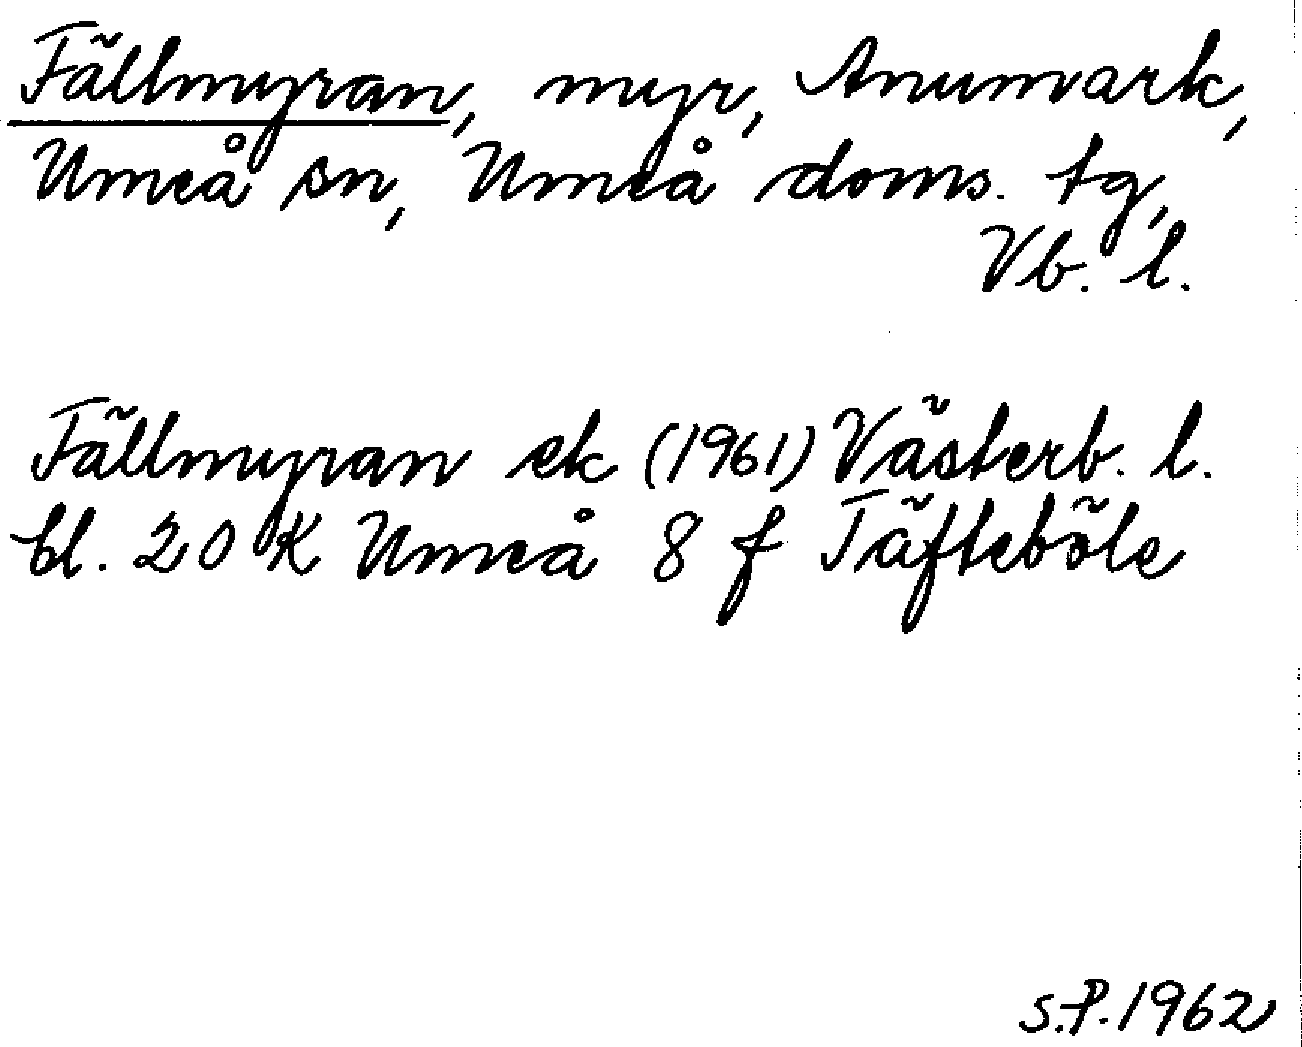 Fällmyran, myr, Anumark,
Umeå sn, Umeå doms. tg,
Vb. l.
Fällmyran ek (1961) Västerb. l.
bl. 20 K Umeå 8 f Täfteböle
S.P. 1962